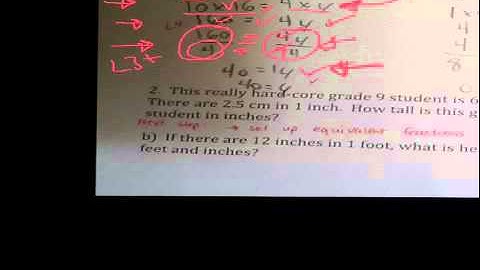 10 x 16 = 4 x y
160 = 4y
160 = 4y
4 4
L3+
40 = 1y
40 = y
2. This really hard-core grade 9 student is 6
There are 2.5 cm in 1 inch. How tall is this g
student in inches?
first step → set up equivalent fractions
b) If there are 12 inches in 1 foot, what is he
feet and inches?